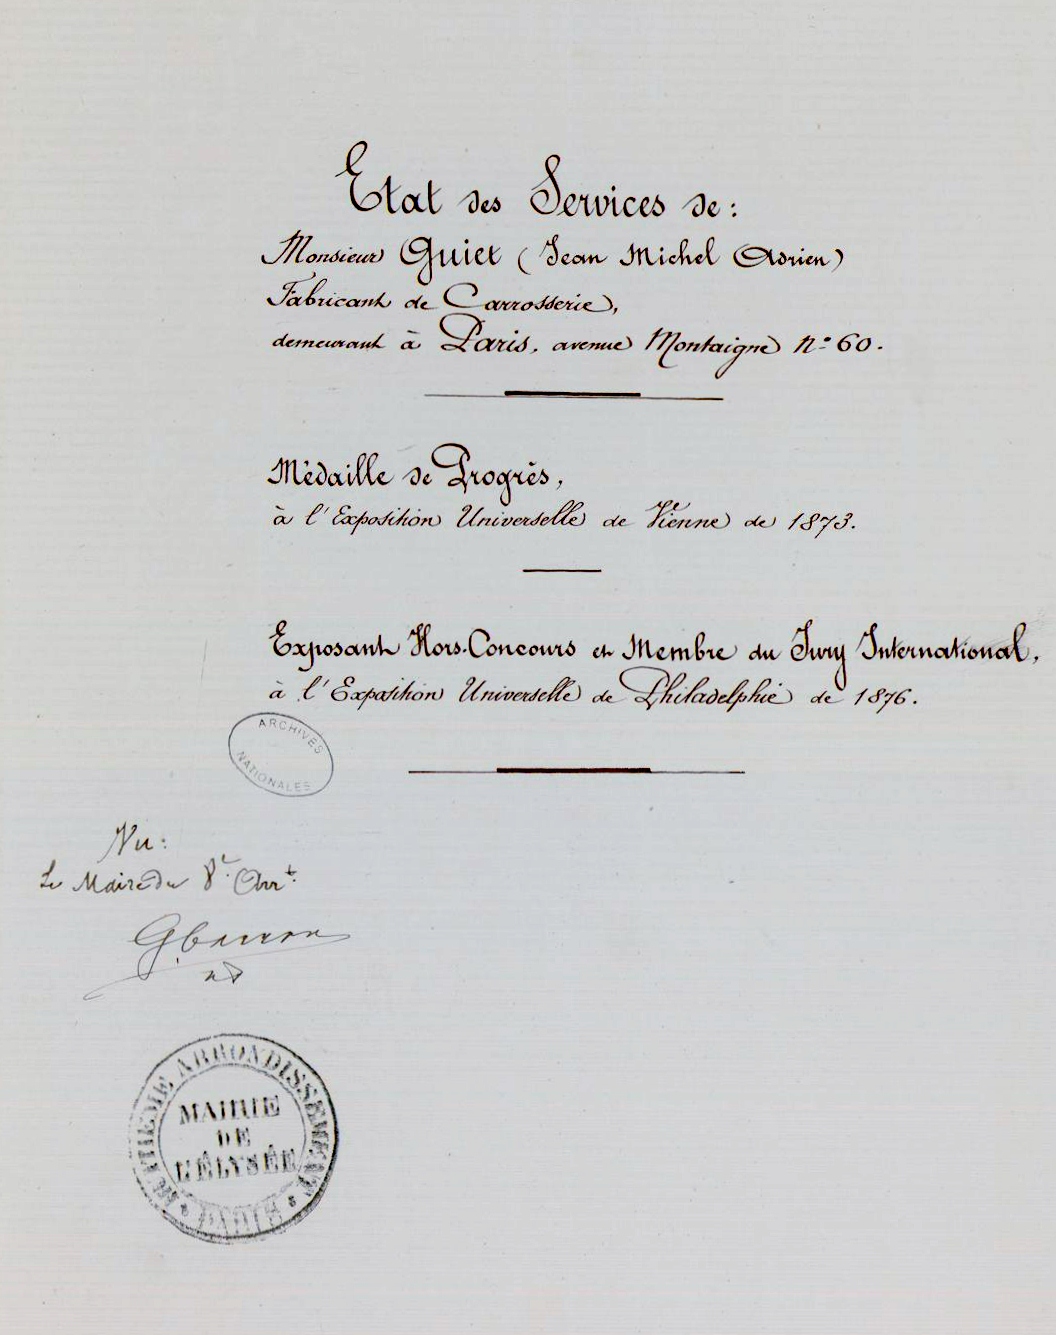 Etat des Services de:
Monsieur Guiet (Jean Michel Adrien)
Fabricant de Carrosserie,
demeurant à Paris, avenue Montaigne n° 60.
Médaille de Progrès,
à l'Exposition Universelle de Vienne de 1873.
Exposant Hors-Concours et Membre du Jury International,
à l'Exposition Universelle de Philadelphie de 1876.
ARCHIVES
NATIONALES
Vu:
Le Maire du 8e Arrt.
HUITIEME ARRONDISSEMENT
MAIRIE
DE
L'ÉLYSÉE
PARIS